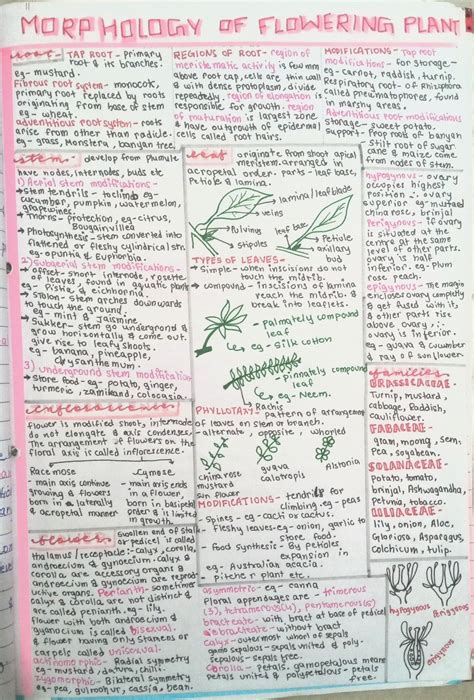 MORPHOLOGY OF FLOWERING PLANT
ROOT - TAP ROOT - primary
root & its branches.
eg - mustard.
Fibrous root system - monocot,
primary root replaced by roots
originating from base of stem
eg - wheat.
adventitious root system - roots
arise from other than radicle.
eg - grass, Monstera, banyan tree.
REGIONS OF ROOT - region of
meristematic activity is few mm
above root cap, cells are thin wall
& with dense protoplasm, divide
repeatedly. region of elongation is
responsible for growth. region
of maturation is largest zone
& have outgrowth of epidermal
cells called root hairs.
MODIFICATIONS - Tap root
modifications - for storage -
eg - carrot, raddish, turnip.
Respiratory root - of Rhizophora
called pneumatophores, found
in marshy areas.
Adventitious root modifications
storage - sweet potato.
support - Prop roots of banyan
stilt root of sugar
cane & maize come
from nodes of stem.
stem - develop from plumule
have nodes, internodes, buds etc
1) Aerial stem modifications -
stem tendrils - to climb eg -
cucumber, pumpkin, watermelon,
grapewines.
Thorns - protection, eg - citrus,
Bougainvillea
Photosynthesis - stem converted into
flattened or fleshy cylindrical str.
eg - opuntia & Euphorbia.
2) Subaerial stem modifications -
offset - short internode, rosette
of leaves, found in aquatic plants
eg - Pistia & eichhornia.
Stolon - stem arches downwards
to touch the ground,
eg - mint & Jasmine.
Sukker - stem go underground &
grow horizontally & come out
give rise to leafy shoots.
eg - banana, pineapple,
Chrysanthmum.
3) underground stem modification
Store food - eg - potato, ginger,
turmeric, zamikand, colocasia.
leaf - originate from shoot apical
meristem. arranged in
acropetal order. parts - leaf base,
Petiole & lamina.
lamina/leaf blade
veins
Pulvinus
stipules
leaf base
Petiole
axillary
bud
TYPES OF LEAVES -
Simple - when inscisions do not
touch the midrib.
compound - inscisions of lamina
reach the midrib &
break into leaflets.
Palmately compound
leaf
eg - Silk cotton
Pinnately compound
leaf
eg - Neem.
Rachis
PHYLLOTAXY - pattern of arrangement
of leaves on stem or branch.
- alternate, opposite, whorled
china rose
mustard
sun flower
guava
calotropis
Alstonia
MODIFICATIONS - tendril for
climbing. eg - peas
- Spines - eg - cacti or cactus.
- Fleshy leaves - eg - onion, garlic to
store food.
- Food synthesis - By petioles
expansion in
eg - Australian acacia.
- pitcher plant etc.
hypogynous - ovary
occupies highest
position ∴ ovary
superior eg - mustard
china rose, brinjal
Perigynous - if ovary
is situated at the
centre at the same
level of other parts.
ovary is half
inferior. eg - plum
rose peach.
epigynous - The margin
enclosed ovary completely
& get fused with it,
& other parts rise
above ovary, ∴
ovary is inferior.
eg - guava & cucumber
& ray of sunflower.
families
BRASSICACEAE -
Turnip, mustard,
cabbage, Raddish,
cauliflower.
FABACEAE -
gram, moong, sem,
Pea, soyabean.
SOLANACEAE -
Potato, tomato,
brinjal, Ashwagandha,
petunia, tobacco
LILIACEAE -
lily, onion, Aloe,
Gloriosa, Asparagus,
colchicum, tulip
inflorescence
flower is modified shoot, internode
do not elongate & axis condense.
The arrangement of flowers on the
floral axis is called inflorescence.
Racemose
- main axis continue
growing & flowers
born in a laterally
& acropetal manner
Cymose
- main axis ends
in a flower,
born in basipetal
order & is limited
in growth.
flower
Swollen end of stalk
or pedicel is called
thalamus / receptacle :- calyx, corolla,
androecium & gynoecium. calyx &
corolla are accessory organs &
androecium & gynoecium are reproductive organs.
Perianth - sometimes
calyx & corolla, are not distinct &
are called perianth. eg - lily.
flower with both androecium &
gynoecium is called bisexual.
& flower having only stamens or
carpels called unisexual.
actinomorphic - Radial symmetry
eg - mustard, datura, chilli.
zygomorphic - Bilateral symmetry
eg - pea, gulmohur, cassia, bean.
asymmetric - eg - canna
Floral appendages are - trimerous
(3), tetramerous(4), pentamerous(5)
bracteate - with bract at base of pedicel
ebracteate - without bract
calyx - outer most whorl of sepals
gamosepalous - sepals united & poly -
sepalous - sepals free.
corolla - Petals, gamopetalous means
petals united & polypetalous - petals
free.
hypogynous
Perigynous
epigynous